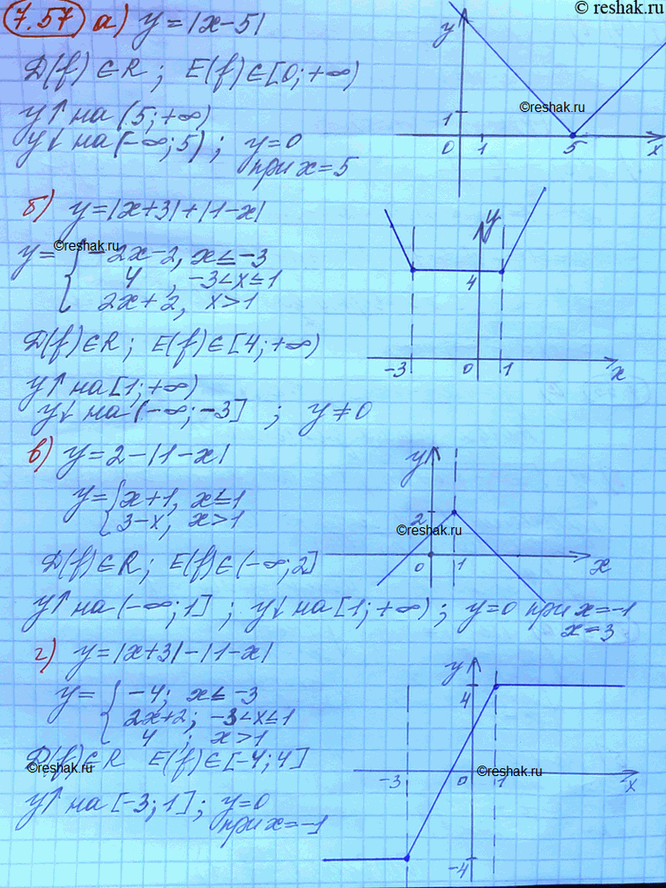 © reshak.ru
7.57 а) y=|x-5|
D(f)∈R; E(f)∈[0;+∞)
y↑ на (5;+∞)
y↓ на (-∞;5); y=0
при x=5
y
1
0 1 5 x
©reshak.ru
б) y=|x+3|+|1-x|
©reshak.ru
y= { -2x-2, x≤-3
4, -3<x≤1
2x+2, x>1
D(f)∈R; E(f)∈[4;+∞)
y↑ на [1;+∞)
y↓ на (-∞;-3] ; y≠0
y
4
-3 0 1 x
в) y=2-|1-x|
y= { x+1, x≤1
3-x, x>1
D(f)∈R; E(f)∈(-∞;2]
y↑ на (-∞;1] ; y↓ на [1;+∞); y=0 при x=-1
x=3
y
2
©reshak.ru
0 1 x
г) y=|x+3|-|1-x|
y= { -4; x≤-3
2x+2; -3<x≤1
4 ; x>1
D(f)∈R E(f)∈[-4;4]
©reshak.ru
y↑ на [-3;1]; y=0
при x=-1
y
4
-3 0 1 x
©reshak.ru
-4